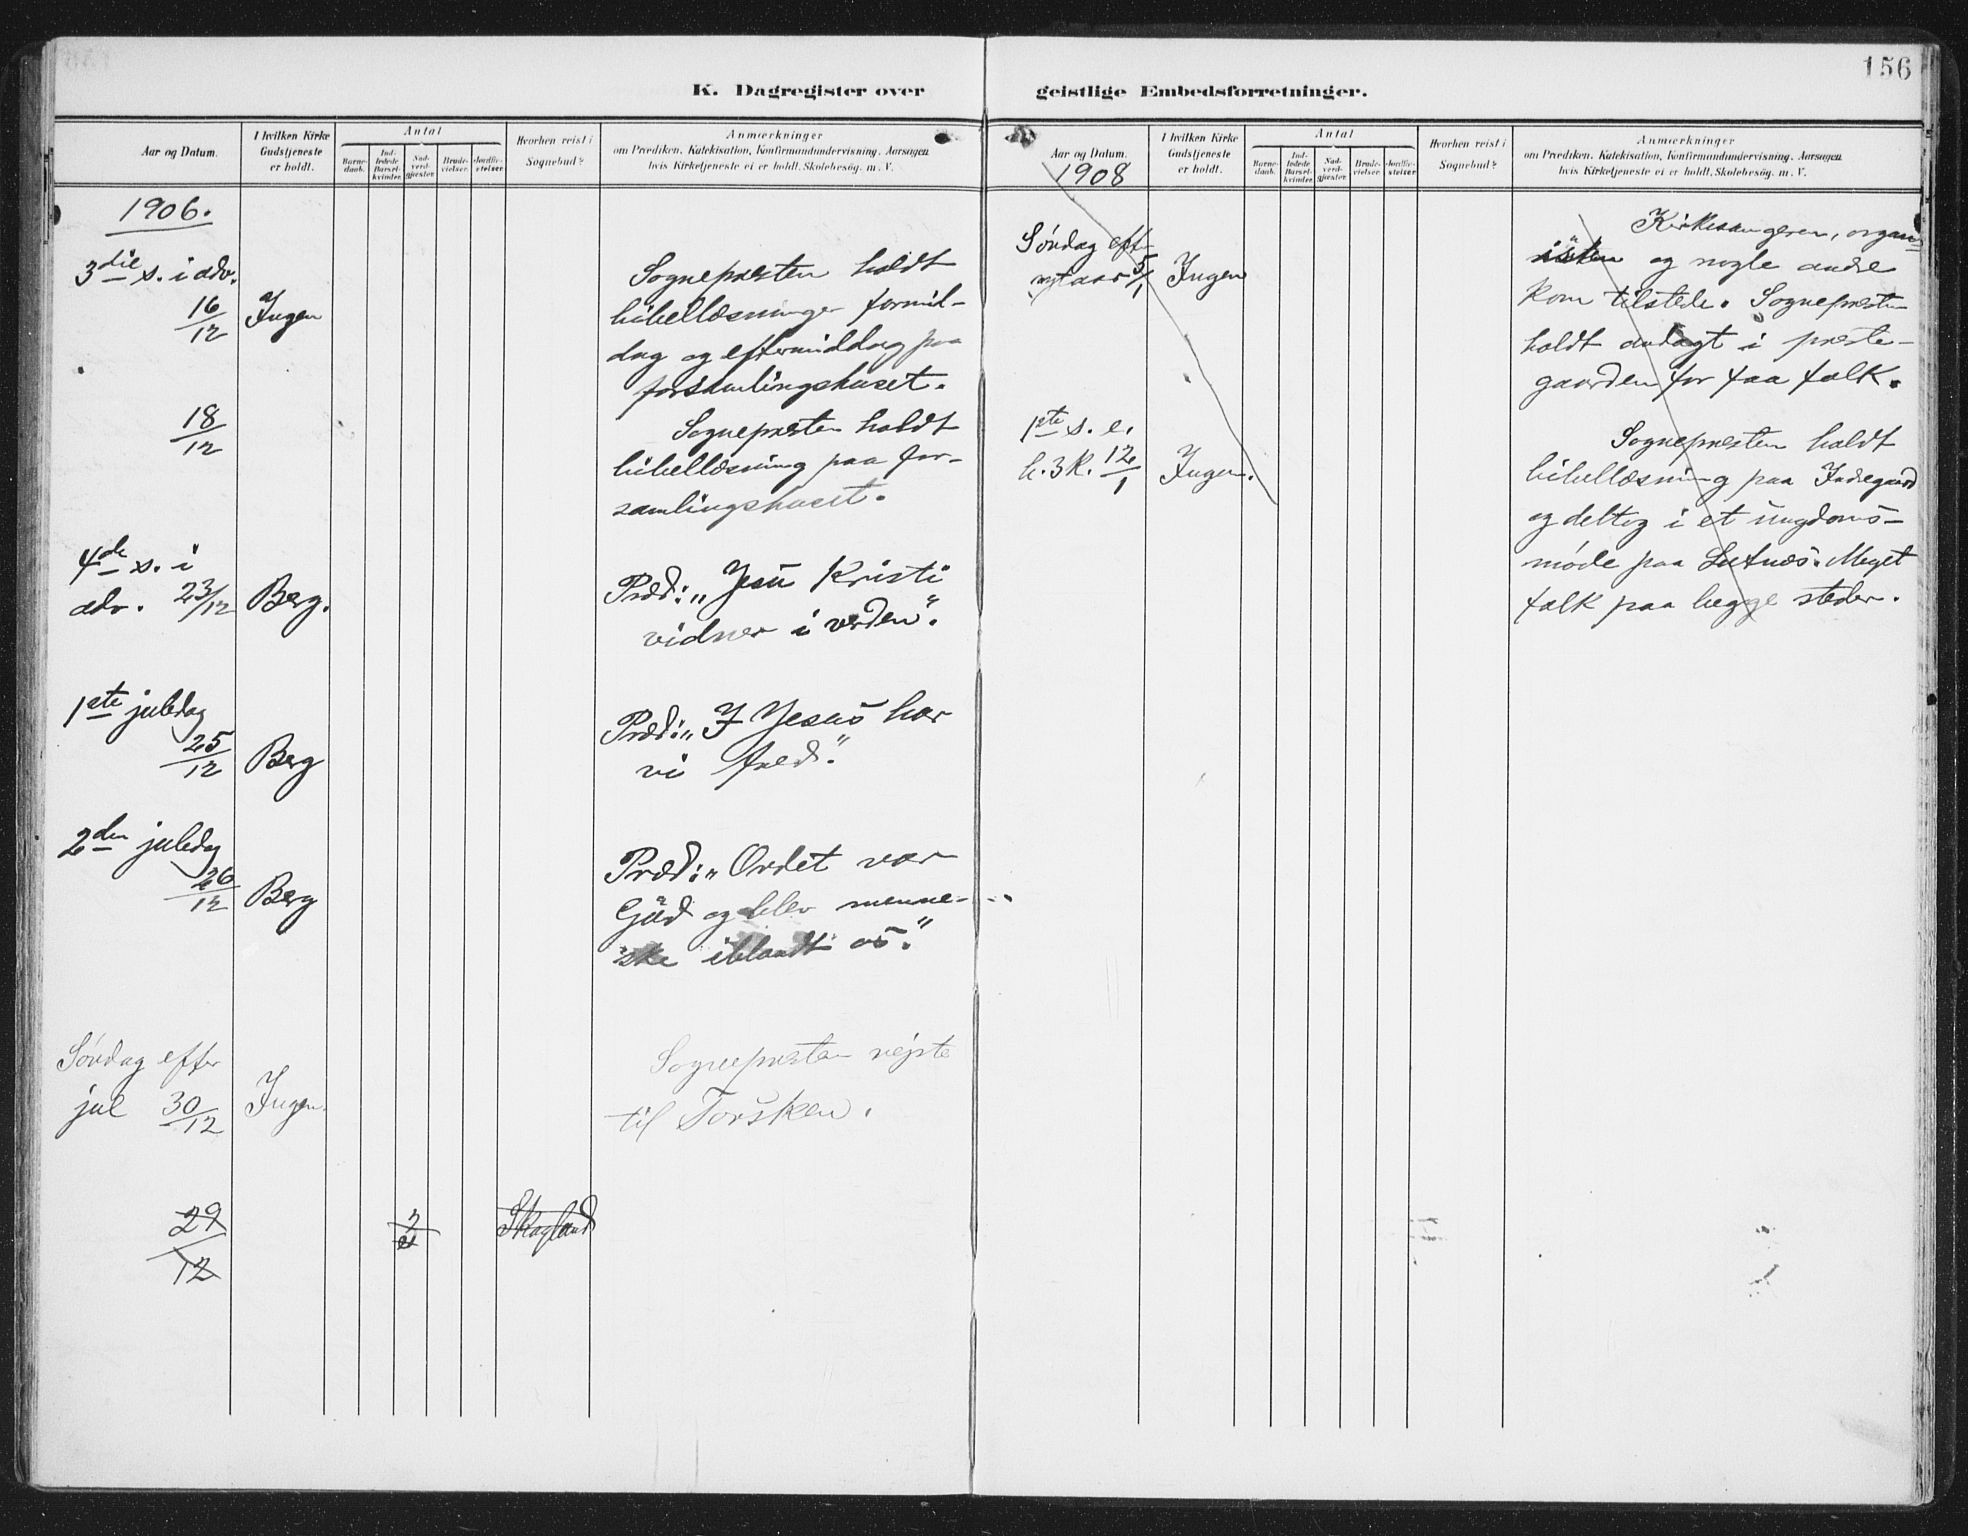 156
K. Dagregister over geistlige Embedsforretninger.
Aar og Datum.
I hvilken Kirke Gudstjeneste er holdt.
Antal
Barne-daab.
Ind-ledede Barsel-kvinder.
Nad-verd-gjæster.
Brude-vielser.
Jordfæ-stelser.
Hvorhen reist i Sognebud?
Anmærkninger
om Prædiken, Katekisation, Konfirmandundervisning, Aarsagen
hvis Kirketjeneste ei er holdt, Skolebesøg, m. V.
1906.
3die s. i adv.
16/12 Ingen
Sognepresten holdt
bibellæsninger formid-
dag og eftermiddag paa
forsamlingshuset.
18/12
Sognepresten holdt
bibellæsning paa for-
samlingshuset.
4de s. i
adv. 23/12 Berg.
Præd: „Jesu Kristi
vidner i verden".
1ste juledag
25/12 Berg
Præd: „I Jesus har
vi fred."
2den juledag
26/12 Berg
Præd: „Ordet var
Gud og blev menne-
ske iblandt os."
Søndag efter
jul 30/12 Ingen.
Sognepresten rejste
til Torsken.
29/12 2 Skagland
Aar og Datum.
I hvilken Kirke Gudstjeneste er holdt.
Antal
Barne-daab.
Ind-ledede Barsel-kvinder.
Nad-verd-gjæster.
Brude-vielser.
Jordfæ-stelser.
Hvorhen reist i Sognebud?
Anmærkninger
om Prædiken, Katekisation, Konfirmandundervisning, Aarsagen
hvis Kirketjeneste ei er holdt, Skolebesøg, m. V.
1908
Søndag eft.
nytaar 5/1 Ingen
Kirkesangeren, organ-
isten og nogle andre
kom tilstede. Sognepresten
holdt andagt i preste-
gaarden for faa folk.
1ste s. e.
h. 3 k. 12/1 Ingen.
Sognepresten holdt
bibellæsning paa Indregaard
og deltog i et ungdoms-
møde paa Lutnæs. Meget
folk paa begge steder.